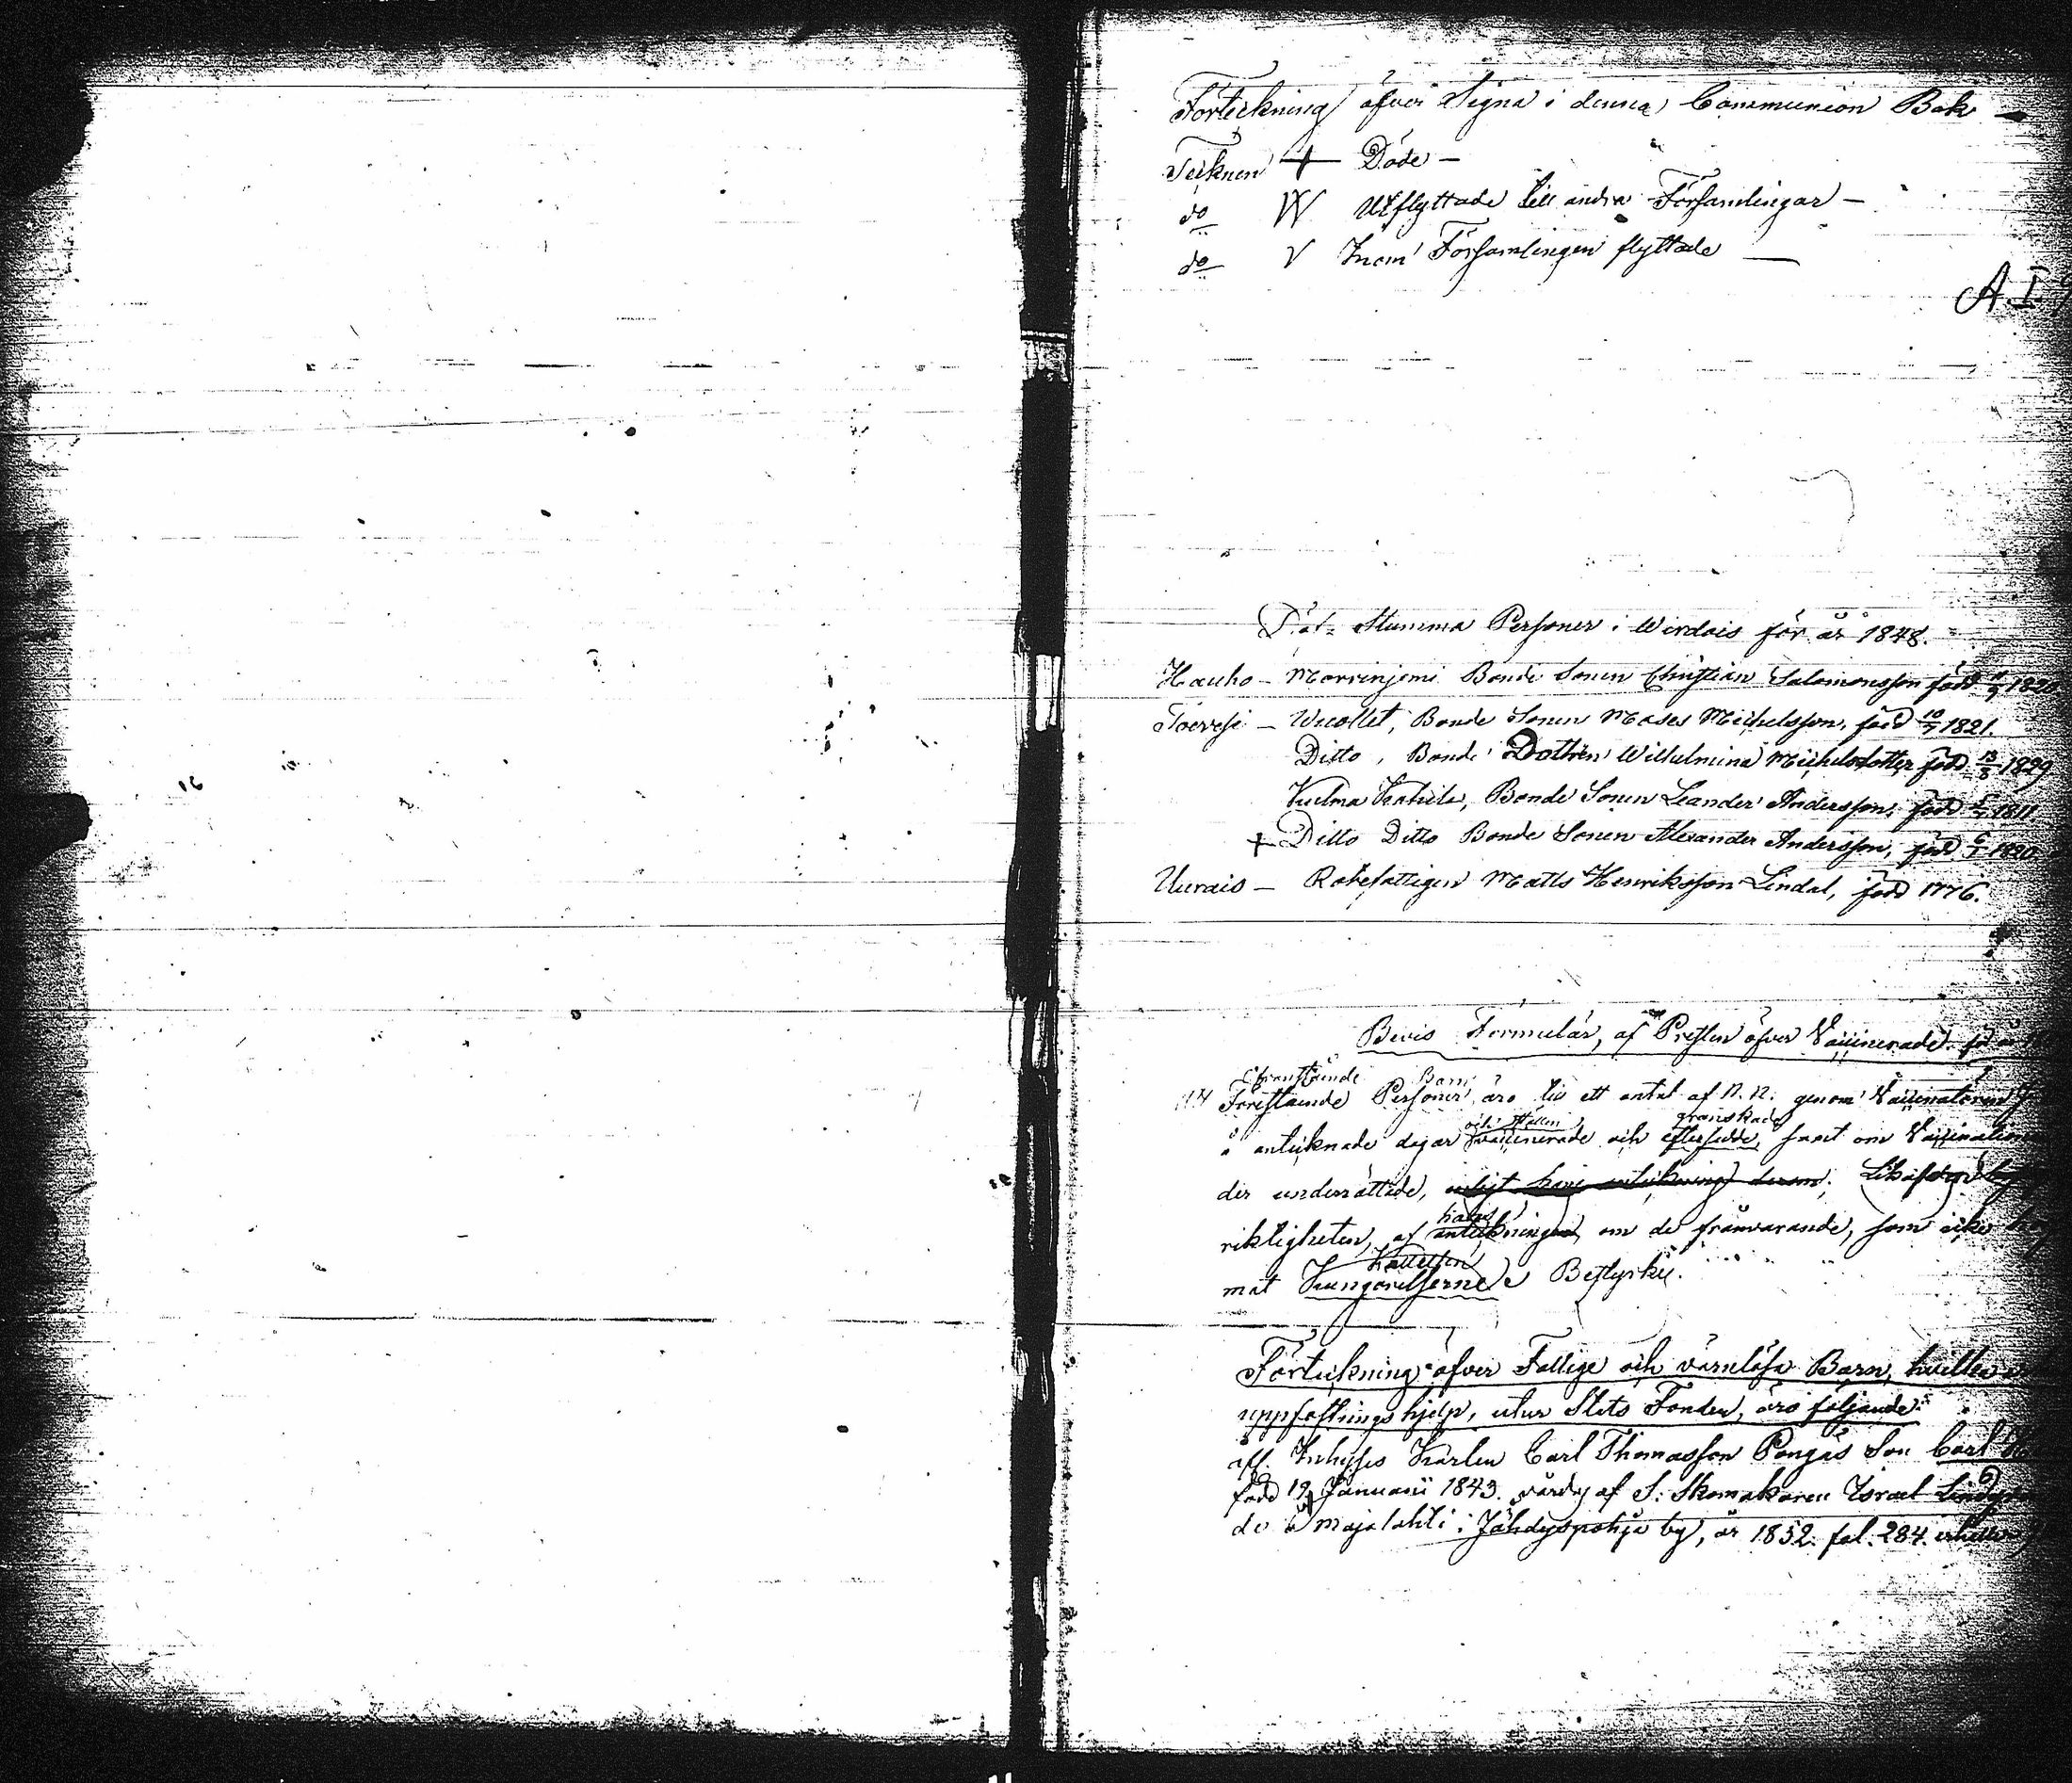 Förteckning öfver Signa i denna Communion Bok —
Tecknen + Döde —
do W Utflyttade till andra Församlingar —
do V Inom Församlingen flyttade —
A. I
Döf-Stumma Personer i Wirdois för år 1848.
Hauho — Morrinjemi Bonde Sonen Christian Salomonsson född
Toevesi — Bonde Sonen Moses Michelsson, född 10/7 1821.
Ditto, Bonde Dottren Wilhelmina Michelsdotter född 1829
Bonde Sonen Leander Andersson, född 1811
+ Ditto Ditto Bonde Sonen Alexander Andersson, född
Uurais — Rotefattigen Matts Henriksson Lindal, född 1776.
Bevis Formulär, af Presten öfver Vaccinerade för år
Ofvanstående Barn
Förestående Personer äro till ett antal af N. N. genom Vaccinatoren
och ställen granskade
å antecknade dagar vaccinerade och eftersedde, samt om Vaccination
der underrättade, enligt hans anteckning derom. Likaså
hans
riktigheten, af anteckningen om de frånvarande, som icke
mat Kungörelserne Bestyrkes.
Förteckning öfver Fattige och värnlösa Barn, hvilka
uppfostringshjelp, utur Stats Fonden, äro följande:
afl. Inhyses Karlen Carl Thomasson Pongäs Son Carl
född 19 Januarii 1843. vårdas af S. Skomakaren Israel
de å Majalahti i Jähdyspohja by, år 1852. fol. 284.